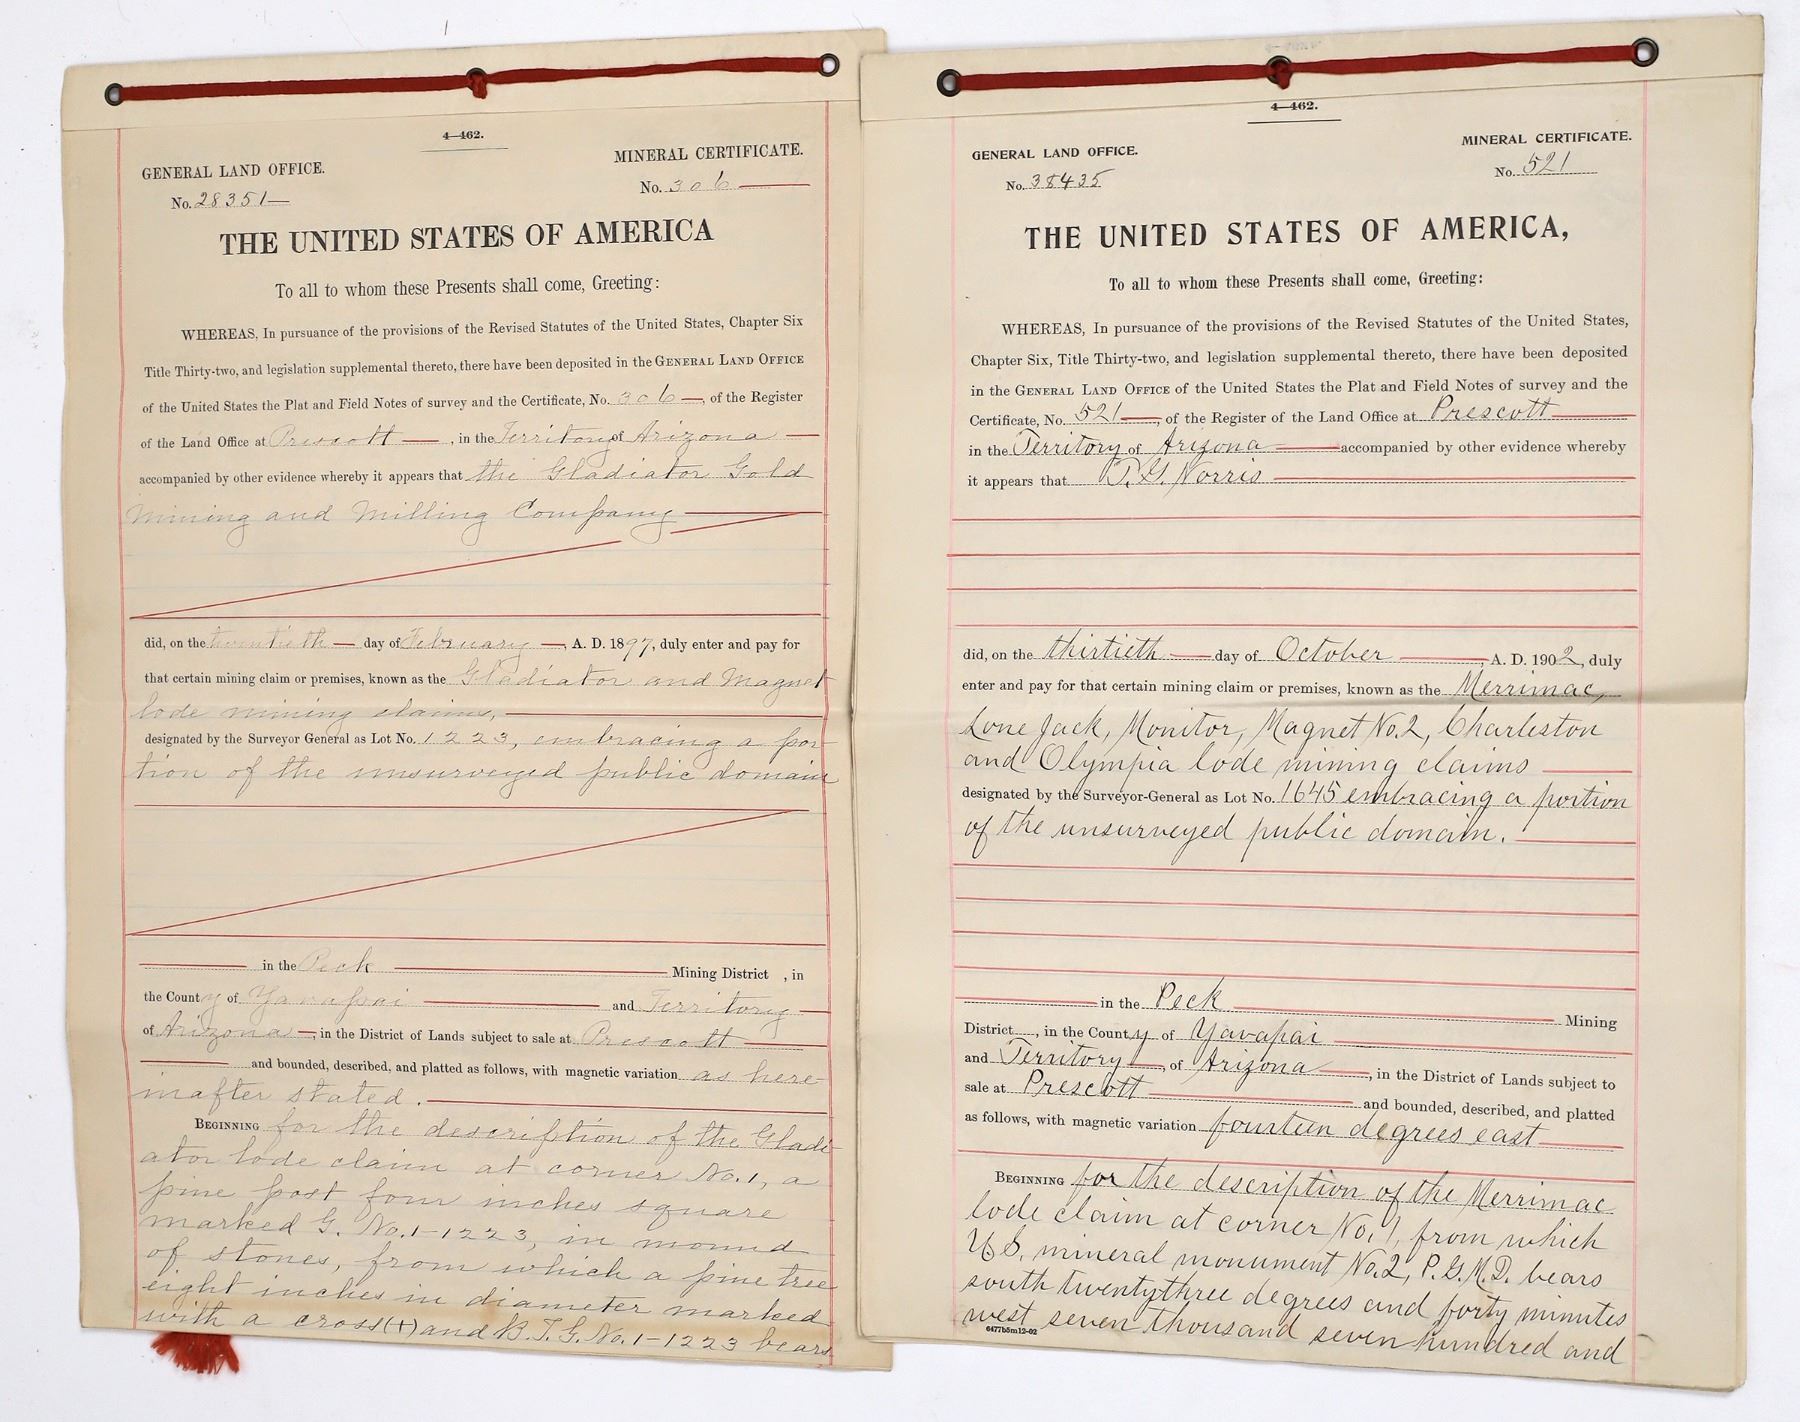 4—462.
GENERAL LAND OFFICE.
No. 28351
MINERAL CERTIFICATE.
No. 306
THE UNITED STATES OF AMERICA
To all to whom these Presents shall come, Greeting:
WHEREAS, In pursuance of the provisions of the Revised Statutes of the United States, Chapter Six
Title Thirty-two, and legislation supplemental thereto, there have been deposited in the GENERAL LAND OFFICE
of the United States the Plat and Field Notes of survey and the Certificate, No. 306, of the Register
of the Land Office at Prescott, in the Territory of Arizona
accompanied by other evidence whereby it appears that the Gladiator Gold
Mining and Milling Company
did, on the twentieth day of February, A. D. 1897, duly enter and pay for
that certain mining claim or premises, known as the Gladiator and Magnet
lode mining claims,
designated by the Surveyor General as Lot No. 1223, embracing a por-
tion of the unsurveyed public domain
in the Peck Mining District , in
the County of Yavapai and Territory
of Arizona, in the District of Lands subject to sale at Prescott
and bounded, described, and platted as follows, with magnetic variation as here-
inafter stated.
BEGINNING for the description of the Gladi-
ator lode claim at corner No. 1, a
pine post four inches square
marked G. No. 1-1223, in mound
of stones, from which a pine tree
eight inches in diameter marked
with a cross (+) and B.T.G. No. 1-1223 bears
4—462.
GENERAL LAND OFFICE.
No. 38435
MINERAL CERTIFICATE.
No. 521
THE UNITED STATES OF AMERICA,
To all to whom these Presents shall come, Greeting:
WHEREAS, In pursuance of the provisions of the Revised Statutes of the United States,
Chapter Six, Title Thirty-two, and legislation supplemental thereto, there have been deposited
in the GENERAL LAND OFFICE of the United States the Plat and Field Notes of survey and the
Certificate, No. 521, of the Register of the Land Office at Prescott
in the Territory of Arizona accompanied by other evidence whereby
it appears that T. G. Norris
did, on the thirtieth day of October, A. D. 1902, duly
enter and pay for that certain mining claim or premises, known as the Merrimac,
Lone Jack, Monitor, Magnet No. 2, Charleston
and Olympia lode mining claims
designated by the Surveyor-General as Lot No. 1645 embracing a portion
of the unsurveyed public domain.
in the Peck Mining
District, in the County of Yavapai
and Territory, of Arizona, in the District of Lands subject to
sale at Prescott and bounded, described, and platted
as follows, with magnetic variation fourteen degrees east
BEGINNING for the description of the Merrimac
lode claim at corner No. 1, from which
U.S. mineral monument No. 2, P.G.M.D. bears
south twentythree degrees and forty minutes
west seven thousand seven hundred and
6477b5m12-02